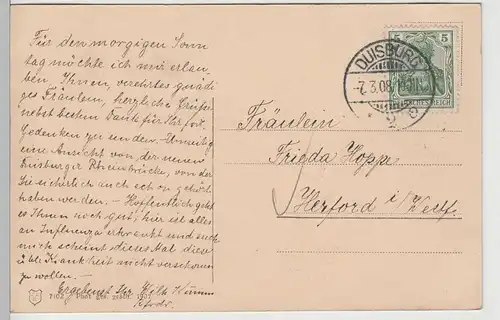 Für den morgigen Sonn
tag möchte ich mir erlau
ben, Ihnen, verehrtes gnädi
ges Fräulein, herzliche Grüße
nebst bestem Dank für Ihr
Gedenken zu senden. Umseitig
eine Ansicht von der neuen
Ruhrorter Rheinbrücke, von der
Sie sicherlich auch schon gehört
haben werden. – Hoffentlich geht
es Ihnen noch gut; hier ist alles
an Influenza erkrankt und auch
mich scheint dieses Mal diese
üble Krankheit nicht verschonen
zu wollen. –
Ergebenst Ihr Wilh.
7102 Phot. gesch. 1907
DUISBURG
-7.3.08.
5 5
DEUTSCHES REICH
Fräulein
Frieda Hoppe
Herford i/Westf.